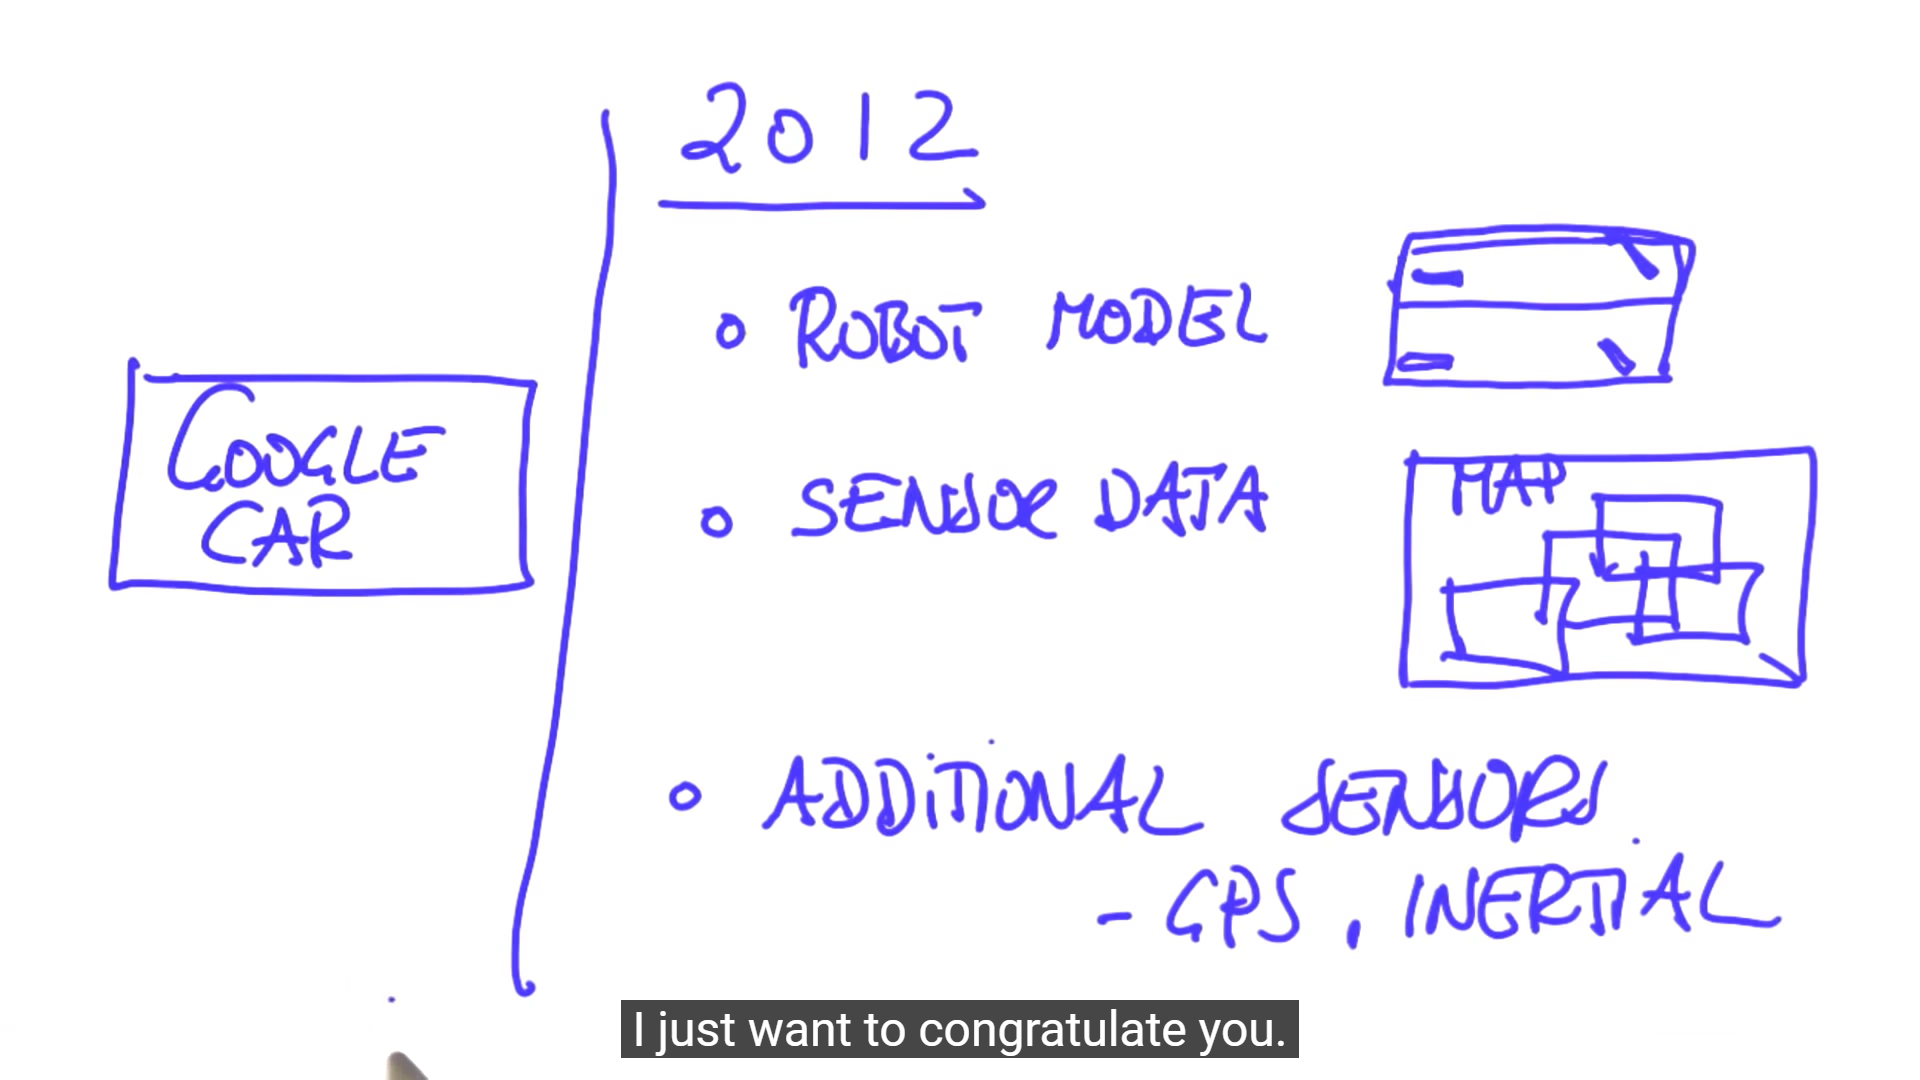 2012
GOOGLE
CAR
ROBOT MODEL
SENSOR DATA
MAP
ADDITIONAL SENSORS
- GPS, INERTIAL
I just want to congratulate you.